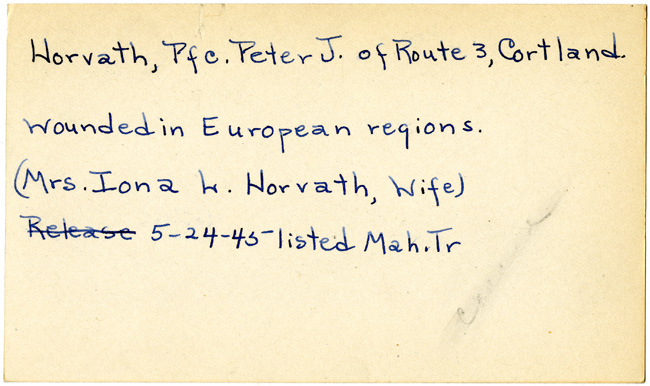 Horvath, Pfc. Peter J. of Route 3, Cortland.
wounded in European regions.
(Mrs. Iona L. Horvath, Wife)
Release 5-24-45-listed Mah. Tr